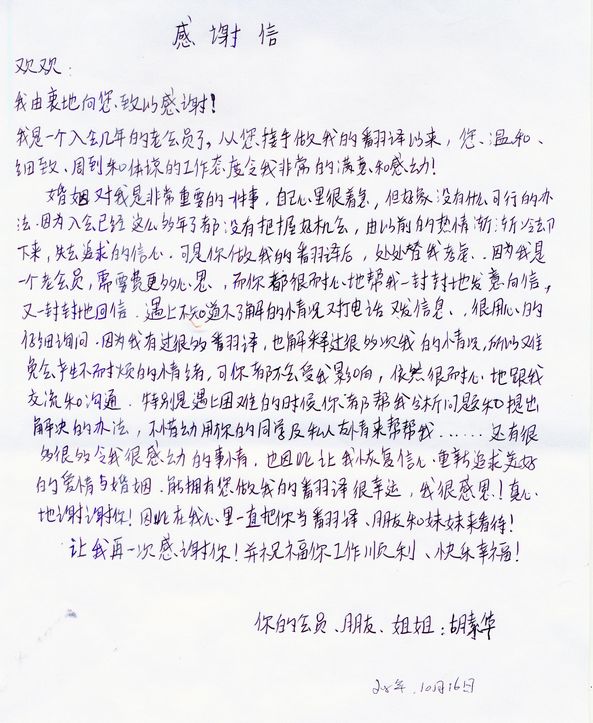 感谢信
欢欢：
我由衷地向您致以感谢！
我是一个入会几年的老会员了，从您接手做我的翻译以来，您、温和、
细致、周到和体谅的工作态度令我非常的满意和感动！
婚姻对我是非常重要的一件事，自己心里很着急，但好象没有什么可行的办
法。因为入会已经这么多年了都没有把握好机会，由以前的热情渐渐冷却
下来，失去追求的信心。可是你做我的翻译后，处处替我考虑、因为我是
一个老会员，需要费更多心思、而你都很耐心地帮我一封封地发意向信，
又一封封地回信。遇上不知道不了解的情况又打电话又发信息、很用心的
仔细询问。因为我有过很多翻译，也解释过很多次我的情况，所以难
免会产生不耐烦的情绪，可你都不会受我影响，依然很耐心地跟我
交流和沟通。特别是遇上困难的时候你都帮我分析问题和提出
解决的办法，不惜动用你的同学及私人友情来帮帮我……还有很
多很多令我很感动的事情，也因此让我恢复信心重新追求美好
的爱情与婚姻。能拥有您做我的翻译很幸运，我很感恩！真心
地谢谢你！因此在我心里一直把你当翻译、朋友和妹妹来看待！
让我再一次感谢你！并祝福你工作顺利、快乐幸福！
你的会员、朋友、姐姐：胡素华
10月16日